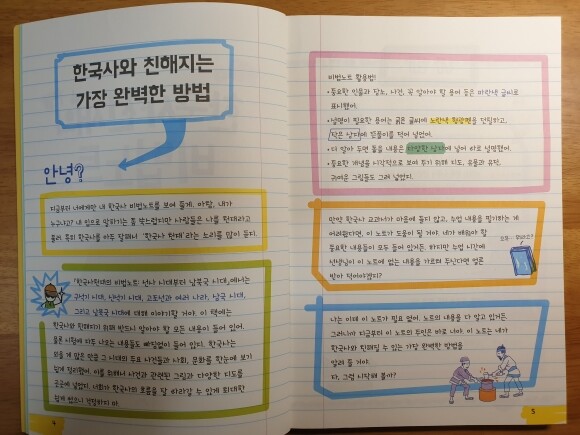 한국사와 친해지는
가장 완벽한 방법
안녕?
지금부터 너에게만 내 한국사 비법노트를 보여 줄게. 아참, 내가
누구냐고? 내 입으로 말하기는 좀 쑥스럽지만 사람들은 나를 천재라고
불러. 특히 한국사를 아주 잘해서 '한국사 천재'라는 소리를 많이 듣지.
『한국사천재의 비법노트: 선사 시대부터 남북국 시대』에서는
구석기 시대, 신석기 시대, 고조선과 여러 나라, 삼국 시대,
그리고 남북국 시대에 대해 이야기할 거야. 이 책에는
한국사와 친해지기 위해 반드시 알아야 할 모든 내용이 들어 있어.
물론 시험에 자주 나오는 내용들도 빠짐없이 들어 있지. 한국사는
외울 게 많은 만큼 그 시대의 주요 사건들과 사회, 문화를 한눈에 보기
쉽게 정리했어. 이를 위해서 사건과 관련된 그림과 다양한 지도를
곳곳에 넣었다. 너희가 한국사의 흐름을 잘 따라갈 수 있게 최대한
쉽게 썼으니 걱정하지 마.
4
비법노트 활용법!
• 중요한 인물과 장소, 사건, 꼭 알아야 할 용어 등은 파란색 글씨로
표시했어.
• 설명이 필요한 용어는 굵은 글씨에 노란색 형광펜을 덧칠하고,
작은 상자에 뜻풀이를 적어 넣었어.
• 더 알아 두면 좋을 내용은 다양한 상자에 넣어 따로 설명했어.
• 중요한 개념을 시각적으로 보여 주기 위해 지도, 유물과 유적,
귀여운 그림들도 그려 넣었지.
만약 한국사 교과서가 마음에 들지 않고, 수업 내용을 필기하는 게
어려웠다면, 이 노트가 도움이 될 거야. 네가 배워야 할
중요한 내용들이 모두 들어 있거든. 하지만 수업 시간에
선생님이 이 노트에 없는 내용을 가르쳐 주신다면 얼른
받아 적어야겠지?
나는 이제 이 노트가 필요 없어. 노트의 내용을 다 알고 있거든.
그러니까 지금부터 이 노트의 주인은 바로 너야. 이 노트는 네가
한국사와 친해질 수 있는 가장 완벽한 방법을
알려 줄 거야.
자, 그럼 시작해 볼까?
5